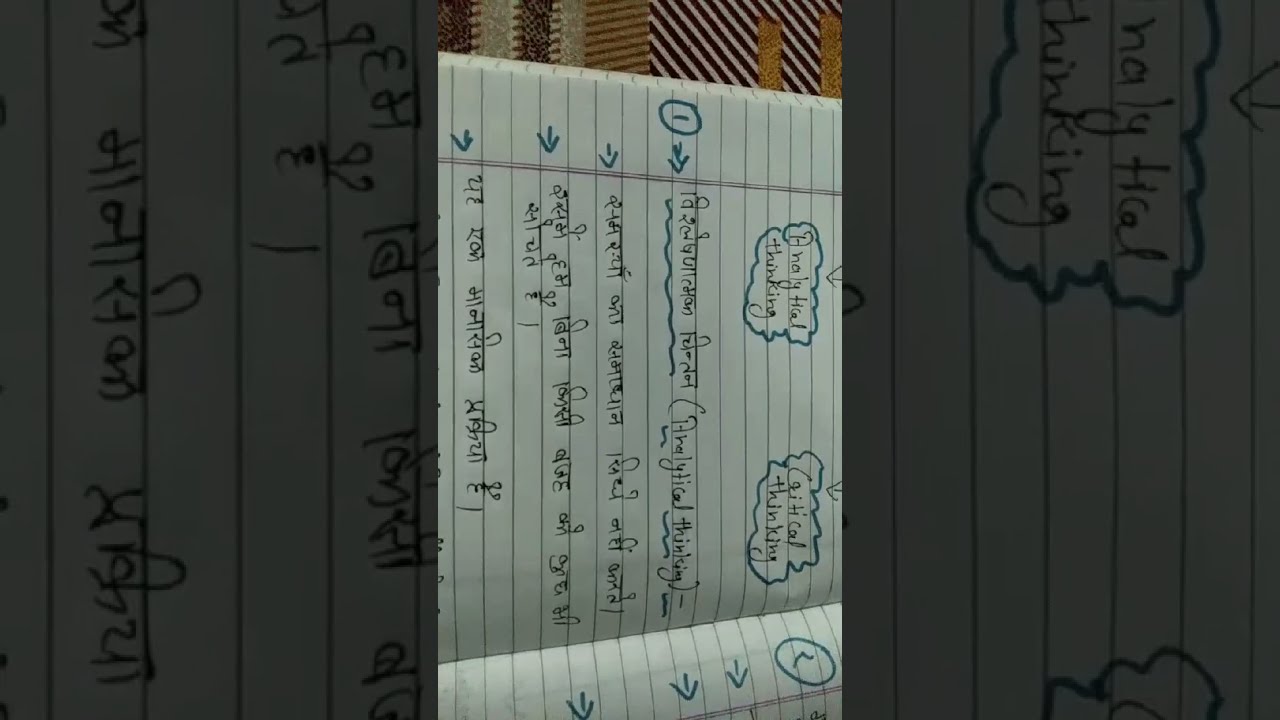 Analytical
thinking
Critical
thinking
① → विश्लेषणात्मक चिन्तन (Analytical thinking) -
→ समस्यों का समाधान सिर्फ नहीं करते।
→ इसमें हम बिना किसी वजह के कुछ भी
सोचते हैं।
→ यह एक मानसिक प्रक्रिया है।
②
→
→
→